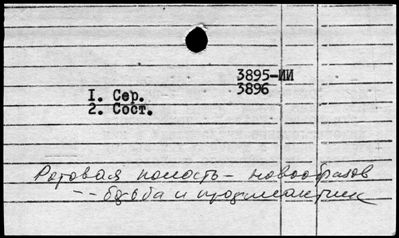 3895-ИИ
3896
I. Сер.
2. Сост.
Ротовая полость - новообразов
-- борьба и профилактик